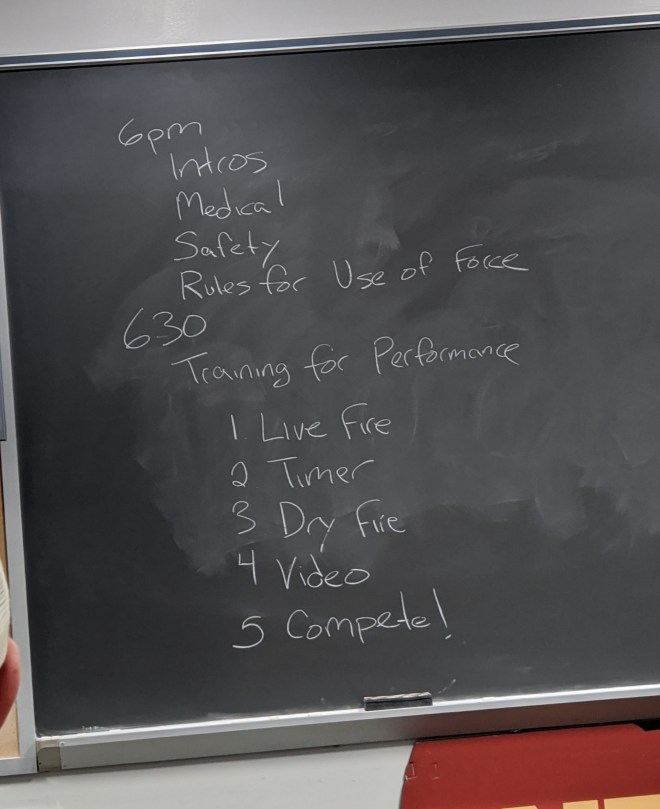 6pm
Intros
Medical
Safety
Rules for Use of Force
630
Training for Performance
1 Live Fire
2 Timer
3 Dry Fire
4 Video
5 Compete!